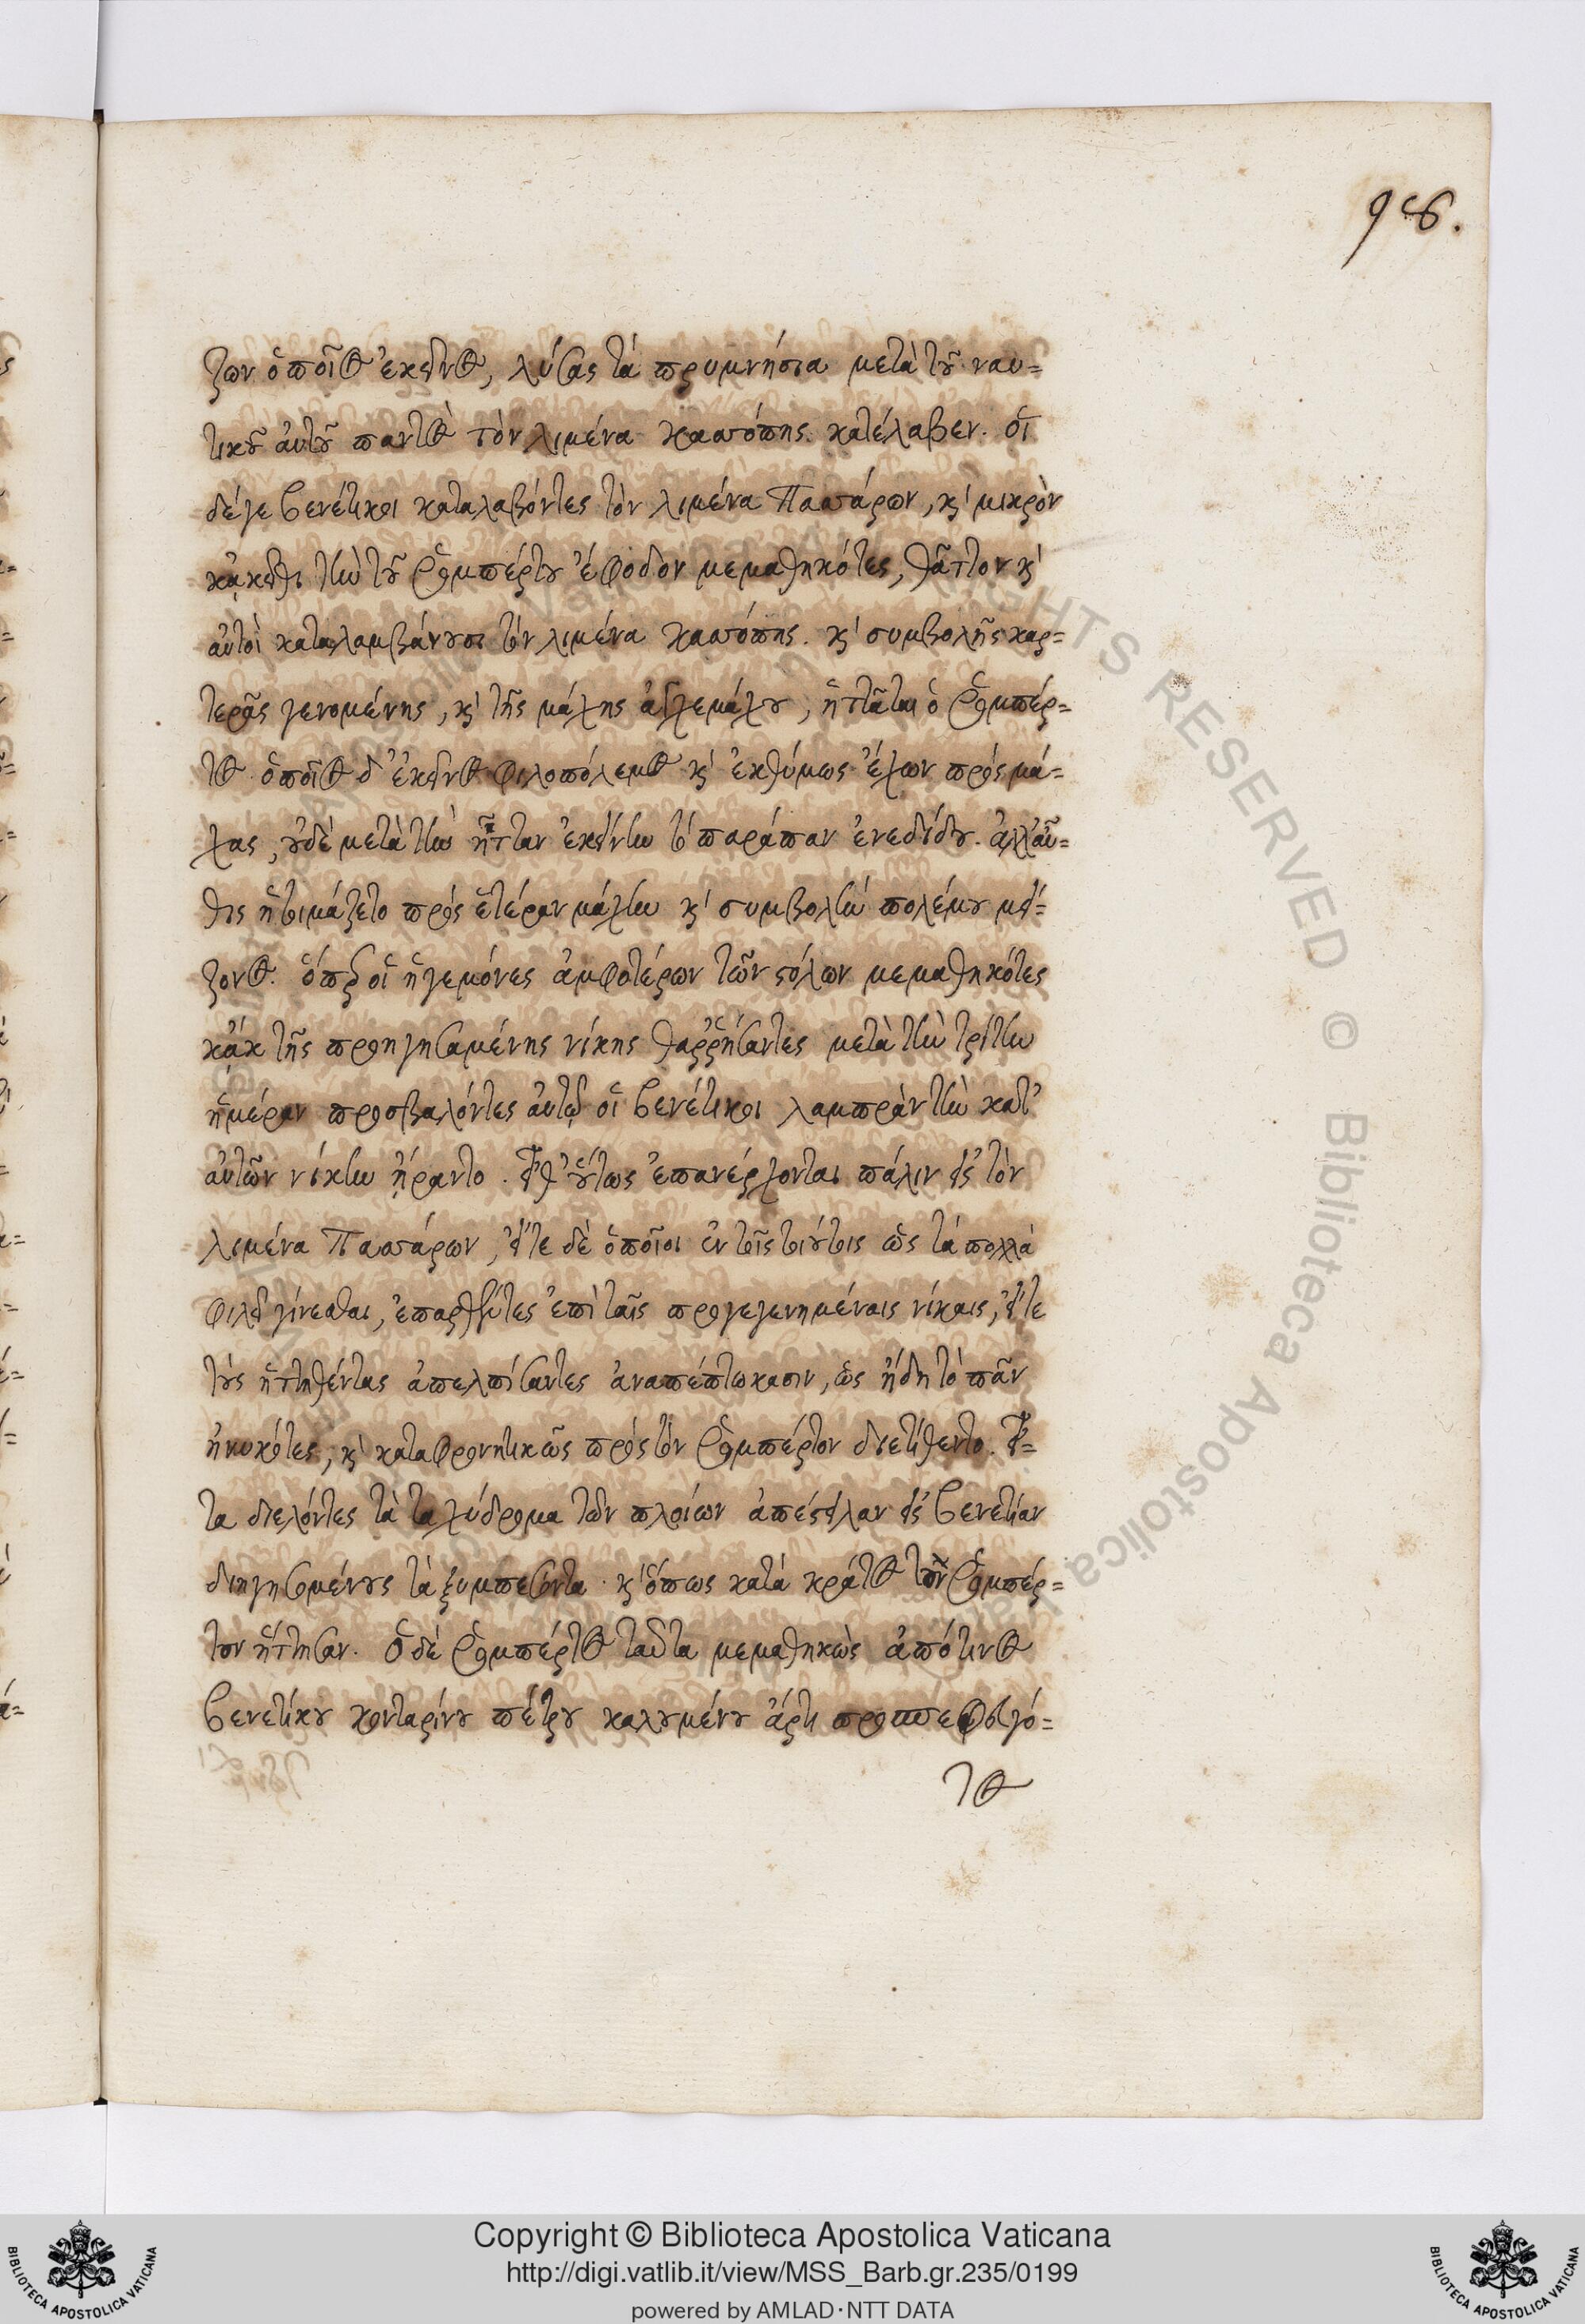 98.
ζων ὁποῖος ἐκεῖνος, λύσας τὰ πρυμνήσια μετὰ τοῦ ναυ=
τικοῦ αὐτοῦ παντὸς τὸν λιμένα Κασόπης κατέλαβεν. οἱ
δέγε βενέτικοι καταλαβόντες τὸν λιμένα Πασάρων, κ' μικρὸν
κἀκεῖθι τὴν τοῦ ῥομπέρτου ἔφοδον μεμαθηκότες, θᾶττον κ'
αὐτοὶ καταλαμβάνουσι τὸν λιμένα Κασόπης. κ' συμβολῆς καρ=
τερᾶς γενομένης, κ' τῆς μάχης ἀγχεμάχου, ἡττᾶται ὁ ῥομπέρ=
τος. ὁποῖος δ' ἐκεῖνος φιλοπόλεμος κ' ἐκθύμως ἔχων πρὸς μά=
χας, οὐδὲ μετὰ τὴν ἧτταν ἐκείνην τὸ παράπαν ἐνεδίδου. ἀλλ' αὖ=
θις ἡτοιμάζετο πρὸς ἑτέραν μάχην κ' συμβολὴν πολέμου μεί=
ζονος. ὅπερ οἱ ἡγεμόνες ἀμφοτέρων τῶν στόλων μεμαθηκότες
κἀκ τῆς προηγησαμένης νίκης θαῤῥήσαντες μετὰ τὴν τρίτην
ἡμέραν προσβαλόντες αὐτῷ οἱ βενέτικοι λαμπρὰν τὴν κατ'
αὐτῶν νίκην ᾔραντο. εἶθ' οὕτως ἐπανέρχονται πάλιν εἰς τὸν
λιμένα Πασάρων, εἴτε δὲ ὁποῖοι ἐν τοῖς τοιούτοις ὡς τὰ πολλὰ
φιλεῖ γίνεσθαι, ἐπαρθέντες ἐπὶ ταῖς προγεγενημέναις νίκαις, εἴτε
τοὺς ἡττηθέντας ἀπελπίσαντες ἀναπέπτωκασιν, ὡς ἤδη τὸ πᾶν
ἠνυκότες, κ' καταφρονητικῶς πρὸς τὸν ῥομπέρτον διετίθεντο. εἶ=
τα διελόντες τὰ ταχύδρομα τῶν πλοίων ἀπέστειλαν εἰς βενετίαν
διηγησομένους τὰ ξυμπεσόντα. κ' ὅπως κατὰ κράτος τὸν ῥομπέρ=
τον ἥττησαν. ὁ δὲ ῥομπέρτος ταῦτα μεμαθηκὼς ἀπό τινος
βενετίκου κονταρίνου πέτρου καλουμένου ἄρτι προσπεφευγό=
τος
Copyright © Biblioteca Apostolica Vaticana
http://digi.vatlib.it/view/MSS_Barb.gr.235/0199
powered by AMLAD·NTT DATA